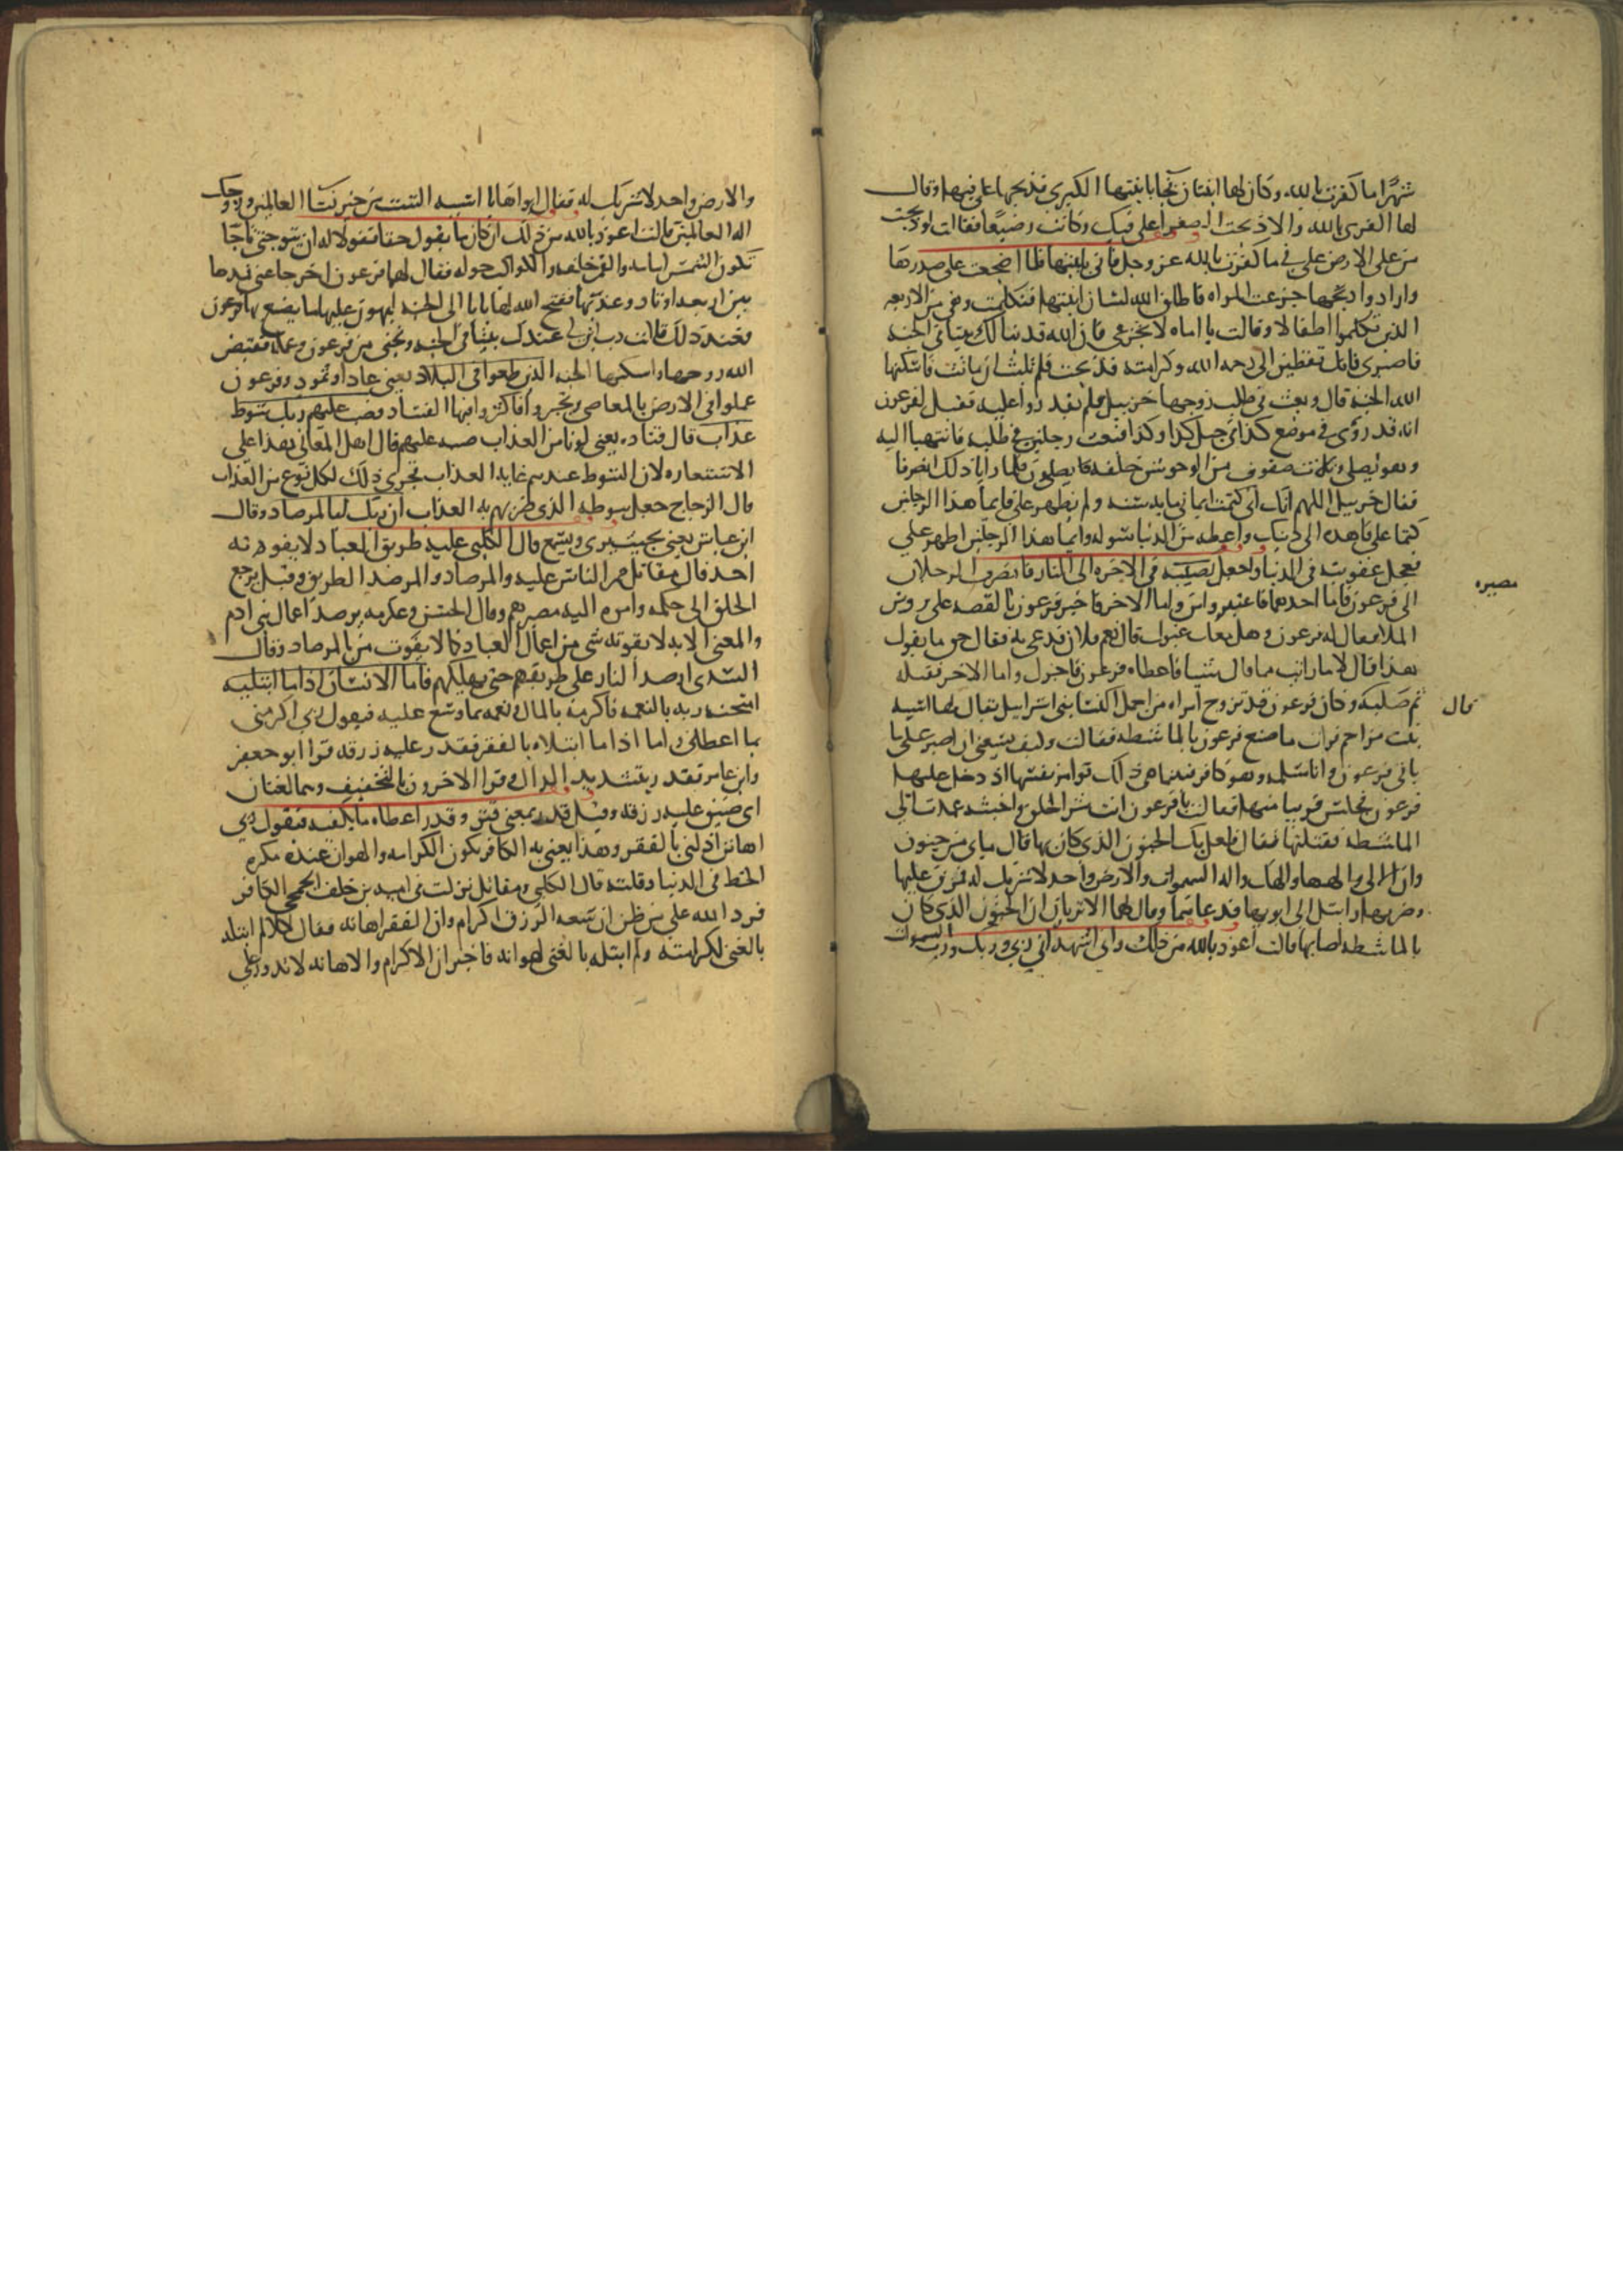 شهرا ما كفرت بالله وكان لها ابنتان فجا بابنتها الكبرى فذبحها على فيها وقال
لها اكفرى بالله والا ذبحت الصغرا على فيك وكانت رضيعا فقالت لو ذبحت
من على الارض على في ما كفرت بالله عز وجل فاتى بابنتها فلما اضجعت على صدرها
وارادوا ذبحها جزعت المراه فاطلق الله لسان ابنتها فتكلمت وهي من الاربعه
الذين تكلموا اطفالا وقالت يا اماه لا تجزعي فان الله قد بنا لك بيتا في الجنه
فاصبرى فانك تفضين الى رحمه الله وكرامته فذبحت فلم تلبث ان ماتت فاسكنها
الله الجنه قال وبعث في طلب زوجها حزبيل فلم يقدروا عليه فقيل لفرعون
انه قد رؤى في موضع كذا في جبل كذا وكذا فبعث رجلين في طلبه فانتهيا اليه
وهو يصلي وثلاث صفوف من الوحوش خلفه يصلون فلما رايا ذلك انصرفا
فقال حزبيل اللهم انك تعلم اني كتمت ايماني مايه سنه ولم يظهر علي فايما هذا الرجلين
كتما علي فاهده الى دينك واعطه من الدنيا سوله وايما هذا الرجلين اظهر علي
فعجل عقوبته في الدنيا واجعل مصيره في الاخره الى النار فانصرف الرجلان
مصيره
الى فرعون فاما احدهما فاعتبر وامن واما الاخر فاخبر فرعون بالقصه على روس
الملا فقال له فرعون وهل معك غيرك قال نعم فلان فدعي به فقال حق ما يقول
هذا قال لا ما رايت مما قال شيئا فاعطاه فرعون فاجزل واما الاخر فقتله
ثم صلبه وكان فرعون قد تزوج امراه من اجمل النسا بني اسراييل يقال لها اسيه
قال
بنت مزاحم فرات ما صنع فرعون بالماشطه فقالت وكيف يسعني ان اصبر على ما
ياتي فرعون وانا مسلمه وهو كافر فبينما هي كذلك توامر نفسها اذ دخل عليها
فرعون فجلس قريبا منها فقالت يا فرعون انت شر الخلق واخبثه عمدت الى
الماشطه فقتلتها فقال فلعل بك الجنون الذي كان بها قال ما بي من جنون
وان الهي والهها والهك واله السموات والارض واحد لا شريك له فمزق عليها
وضربها وارسل الى ابويها فدعاهما وقال لهما الا تريان ان الجنون الذي كان
بالماشطه اصابها قالت اعوذ بالله من ذلك واني اشهد ان ربي وربك ورب السموات
والارض واحد لا شريك له فقال ابواها يا اسيه الست من خير نسا العالمين وزوجك
اله العالمين قالت اعوذ بالله من ذلك ان كان ما يقول حقا فقولا له ان يتوجني تاجا
تكون الشمس امامه والقمر خلفه والكواكب حوله فقال لهما فرعون اخرجا عني فمدها
بين اربعه اوتاد وعذبها ففتح الله لها بابا الى الجنه ليهون عليها ما يصنع بها فرعون
فعند ذلك قالت رب ابن لي عندك بيتا في الجنه ونجني من فرعون وعمله فقبض
الله روحها واسكنها الجنه الذين طغوا في البلاد يعني عادا وثمود وفرعون
عملوا في الارض بالمعاصي وتجبروا فاكثروا فيها الفساد فصب عليهم ربك سوط
عذاب قال قتاده يعني لونا من العذاب صبه عليهم قال اهل المعاني هذا على
الاستعاره لان السوط عندهم غايه العذاب فجرى ذلك لكل نوع من العذاب
قال الزجاج جعل سوطه الذي ضربهم به العذاب ان ربك لبالمرصاد وقال
ابن عباس يعني بحيث يرى ويسمع قال الكلبي عليه طريق العباد لا يفوته
احد قال مقاتل ممر الناس عليه والمرصاد والمرصد الطريق وقيل مرجع
الخلق الى حكمه وامره اليه مصيرهم وقال الحسن وعكرمه يرصد اعمال بني ادم
والمعنى انه لا يفوته شي من اعمال العباد كما لا يفوت من بالمرصاد وقال
السدى ارصد النار على طريقهم حتى يهلكهم فاما الانسان اذا ما ابتليه
امتحنه ربه بالنعمه فاكرمه بالمال ونعمه بما وسع عليه فيقول ربي اكرمني
بما اعطاني واما اذا ما ابتلاه بالفقر فقدر عليه رزقه قرا ابو جعفر
وابن عامر فقدر بتشديد الدال وقرا الاخرون بالتخفيف وهما لغتان
اى ضيق عليه رزقه وقيل قدر بمعنى قتر وقدر اعطاه ما يكفيه فيقول ربي
اهانن اذلني بالفقر وهذا يعني به الكافر يكون الكرامه والهوان عنده بكثره
الحظ في الدنيا وقلته قال الكلبي ومقاتل نزلت في اميه بن خلف الجمحي الكافر
فرد الله على من ظن ان سعه الرزق اكرام وان الفقر اهانه فقال كلا لم ابتله
بالغنى لكرامته ولم ابتله بالغنى لهوانه فاخبر ان الاكرام والاهانه لا تدور على